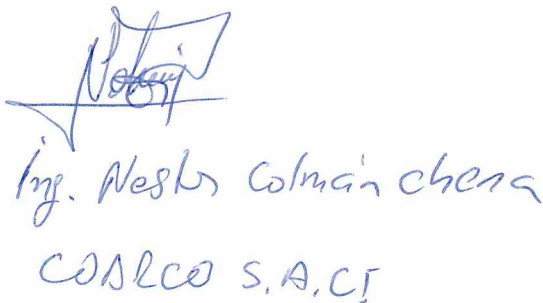 Ing. Nestor Colmán Chena
COARCO S.A.CI